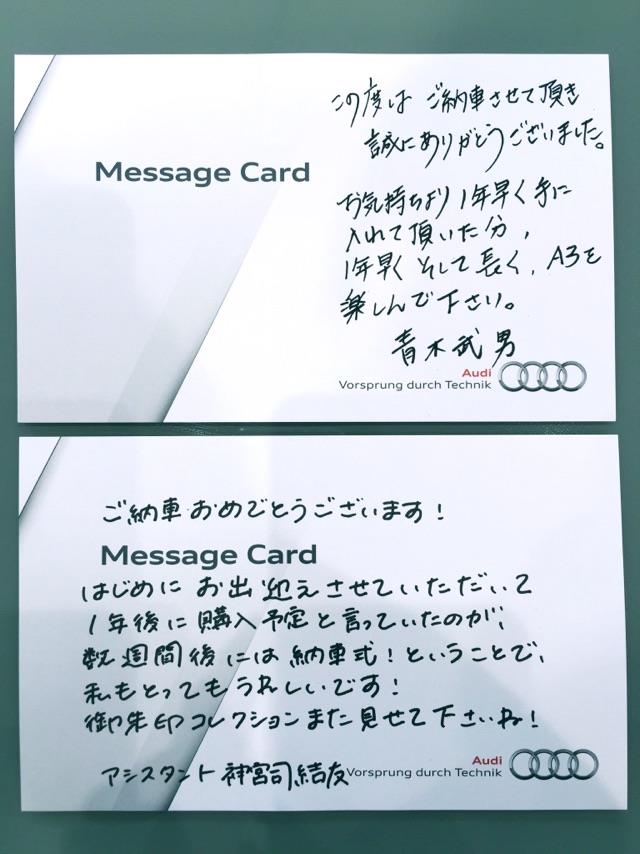 この度は ご納車させて頂き
誠にありがとうございました。
Message Card
お気持ちより1年早く手に
入れて頂いた分、
1年早く そして長く、A3を
楽しんで下さい。
青木武男
Audi
Vorsprung durch Technik
ご納車おめでとうございます!
Message Card
はじめに お出迎えさせていただいて
1年後に購入予定と言っていたのが、
数週間後には納車式!ということで、
私もとってもうれしいです!
御朱印コレクションまた見せて下さいね!
アシスタント 神宮司結友
Audi
Vorsprung durch Technik